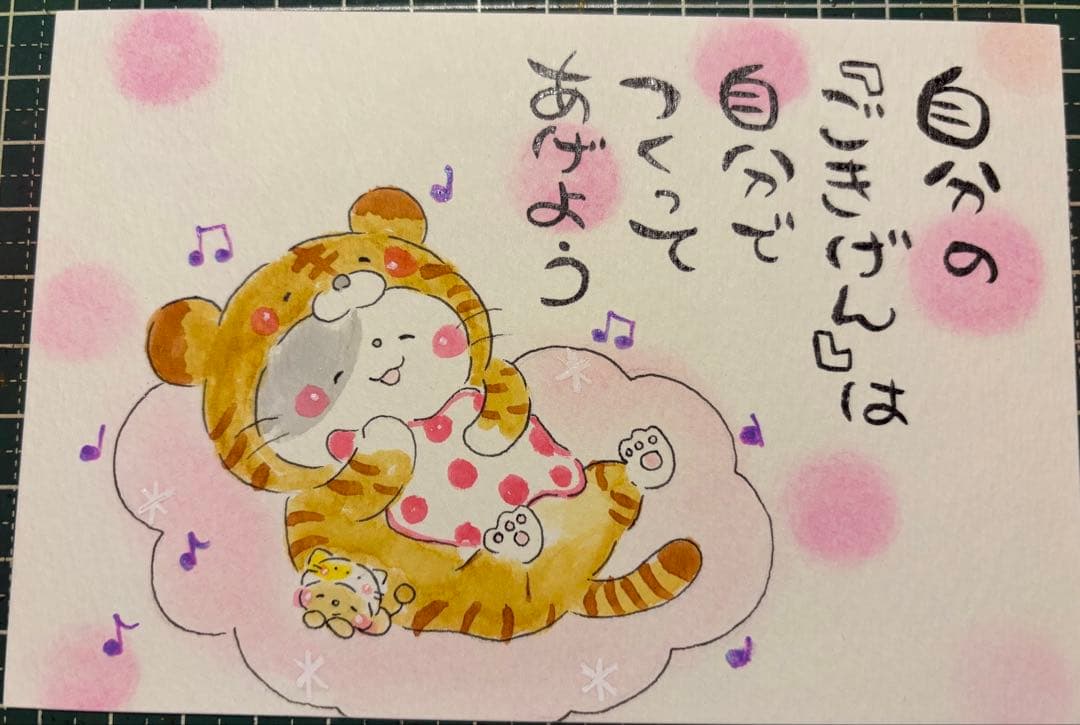 自分の
『ごきげん』は
自分で
つくって
あげよう